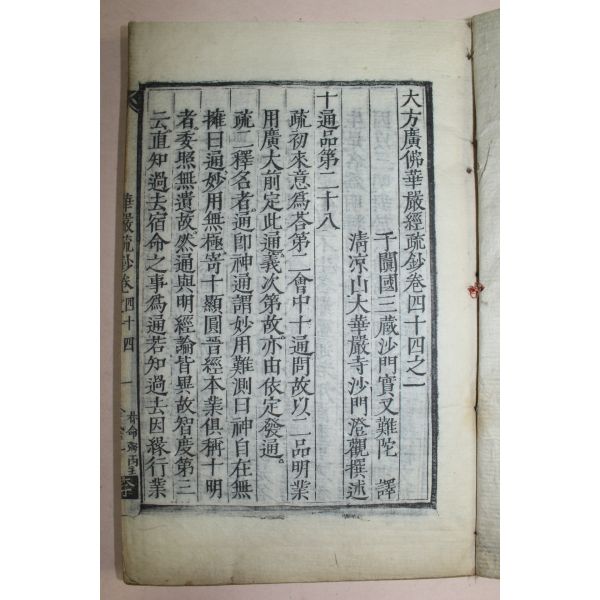 大方廣佛華嚴經疏鈔卷四十四之一
于闐國三藏沙門實叉難陀 譯
清凉山大華嚴寺沙門澄觀撰述
十通品第二十八
疏初來意爲荅第二會中十通問故以二品明業
用廣大前定此通義次第故亦由依定發通
疏二釋名者通即神通謂妙用難測曰神自在無
擁曰通妙用無極寄十顯圓晉經本業俱稱十明
者委照無遺故然通與明經論皆異故智度第三
云直知過去宿命之事爲通若知過去因緣行業
華嚴疏鈔卷四十四 一